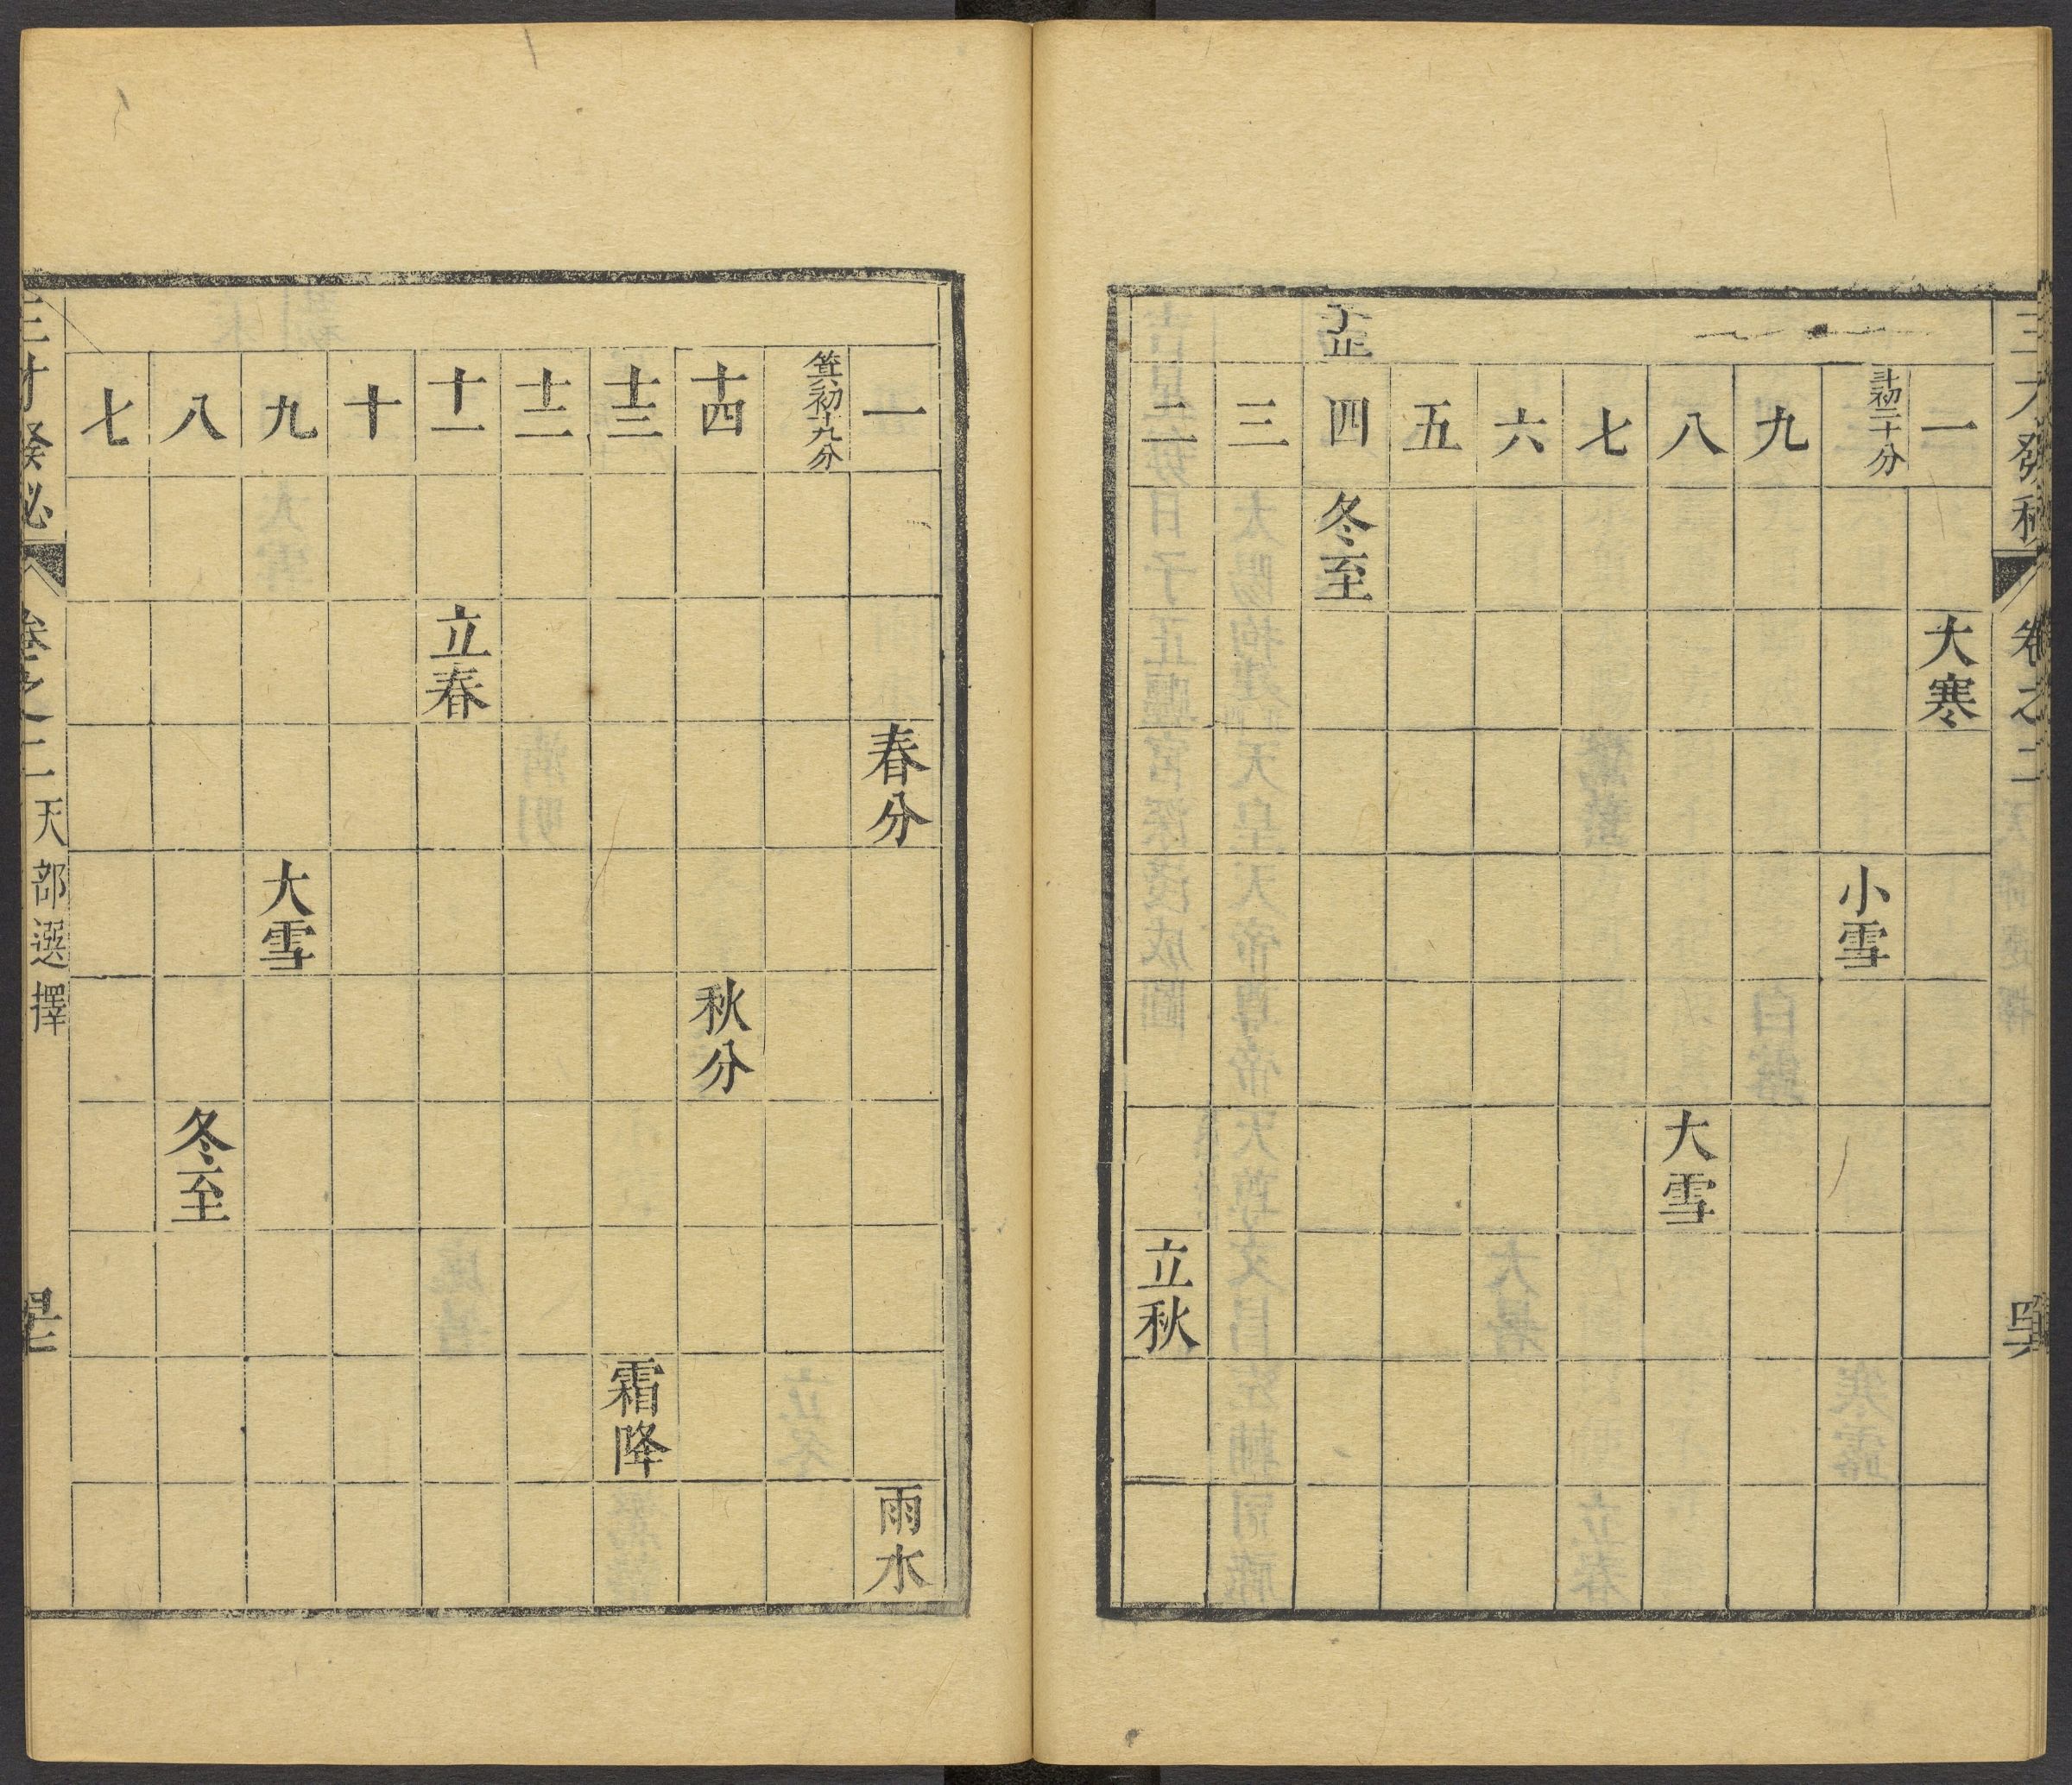 三才發秘 卷之二
一 大寒
斗初二十分 小雪
九
八 大雪
七
六
五
子正 四 冬至
三
二 立秋
一 春分 雨水
箕初十九分
十四 秋分
十三 霜降
十二
十一 立春
十
九 大雪
八 冬至
七
三才發秘 卷之二 天部選擇